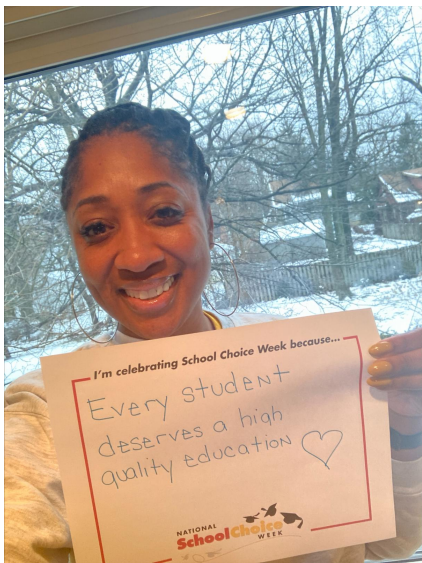 I'm celebrating School Choice Week because...
Every student
deserves a high
quality education
NATIONAL
SchoolChoice
WEEK